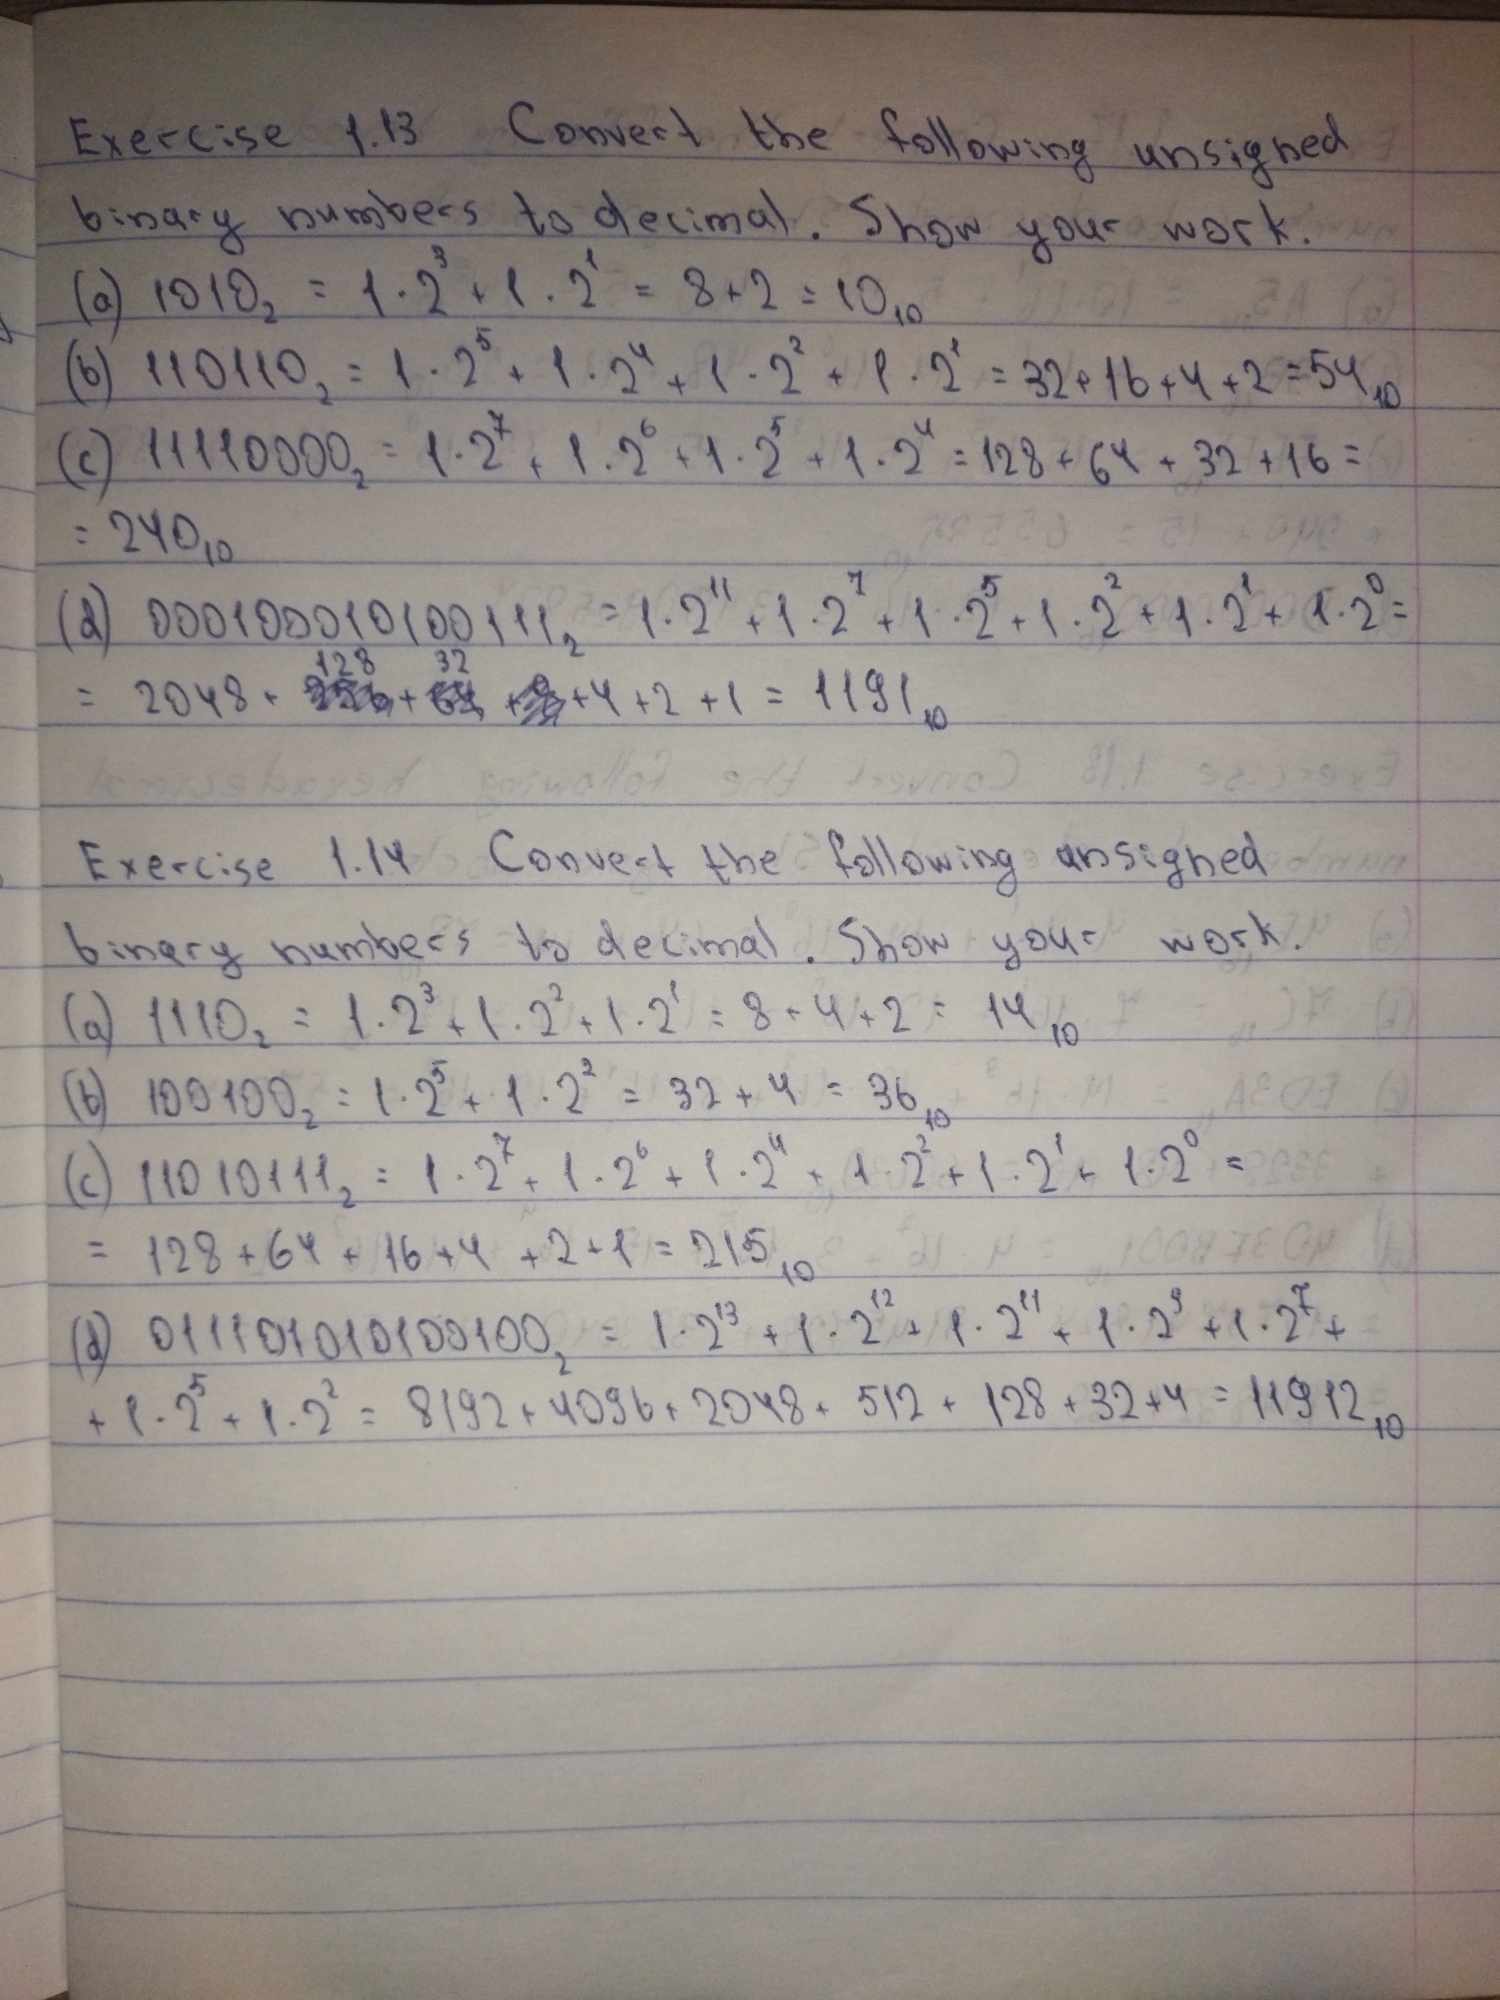 Exercise 1.13 Convert the following unsigned
binary numbers to decimal. Show your work.
(a) 1010₂ = 1·2³ + 1·2¹ = 8+2 = 10₁₀
(b) 110110₂ = 1·2⁵ + 1·2⁴ + 1·2² + 1·2¹ = 32+16+4+2 = 54₁₀
(c) 11110000₂ = 1·2⁷ + 1·2⁶ + 1·2⁵ + 1·2⁴ = 128+64+32+16 =
= 240₁₀
(d) 000100010100111₂ = 1·2¹¹ + 1·2⁷ + 1·2⁵ + 1·2² + 1·2¹ + 1·2⁰ =
= 2048 + 128 + 32 + 4 + 2 + 1 = 1191₁₀
Exercise 1.14 Convert the following unsigned
binary numbers to decimal. Show your work.
(a) 1110₂ = 1·2³ + 1·2² + 1·2¹ = 8+4+2 = 14₁₀
(b) 100100₂ = 1·2⁵ + 1·2² = 32+4 = 36₁₀
(c) 11010111₂ = 1·2⁷ + 1·2⁶ + 1·2⁴ + 1·2² + 1·2¹ + 1·2⁰ =
= 128+64+16+4+2+1 = 215₁₀
(d) 011101010100100₂ = 1·2¹³ + 1·2¹² + 1·2¹¹ + 1·2⁹ + 1·2⁷ +
+ 1·2⁵ + 1·2² = 8192+4096+2048+512+128+32+4 = 11912₁₀